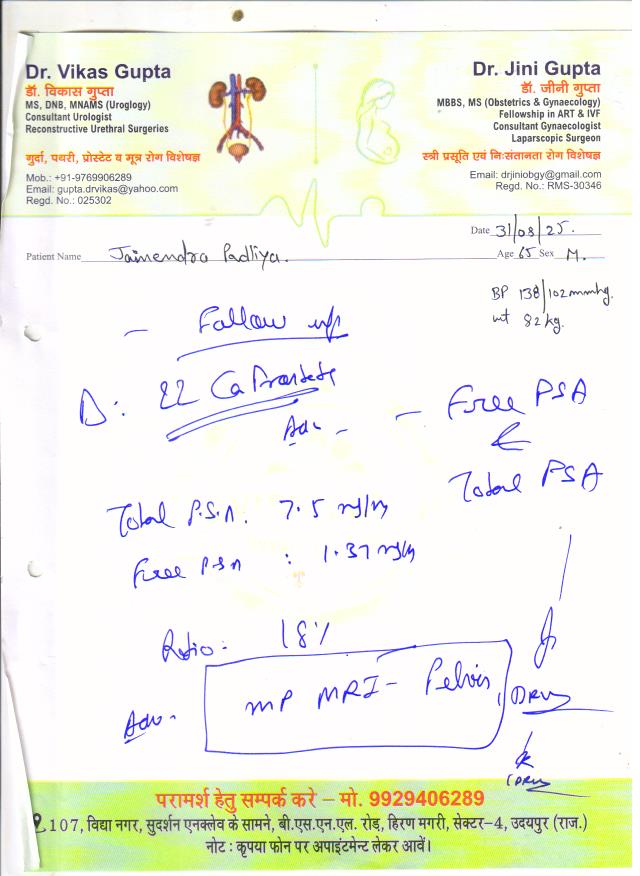 Dr. Vikas Gupta
डॉ. विकास गुप्ता
MS, DNB, MNAMS (Uroglogy)
Consultant Urologist
Reconstructive Urethral Surgeries
गुर्दा, पथरी, प्रोस्टेट व मूत्र रोग विशेषज्ञ
Mob.: +91-9769906289
Email: gupta.drvikas@yahoo.com
Regd. No.: 025302
Dr. Jini Gupta
डॉ. जीनी गुप्ता
MBBS, MS (Obstetrics & Gynaecology)
Fellowship in ART & IVF
Consultant Gynaecologist
Laparscopic Surgeon
स्त्री प्रसूति एवं निःसंतानता रोग विशेषज्ञ
Email: drjiniobgy@gmail.com
Regd. No.: RMS-30346
Date 31/08/25.
Patient Name Jainendra Padliya.
Age 65 Sex M.
BP 138/102mmhg.
wt 82kg.
- Follow up
D: Ca Prostate
Adv - - Free PSA
Total PSA
Total P.S.A. 7.5 ng/ml
Free PSA : 1.37 ng/ml
Ratio: 18%
Adv. MP MRI - Pelvis
परामर्श हेतु सम्पर्क करे – मो. 9929406289
107, विद्या नगर, सुदर्शन एनक्लेव के सामने, बी.एस.एन.एल. रोड़, हिरण मगरी, सेक्टर-4, उदयपुर (राज.)
नोट : कृपया फोन पर अपाइंटमेन्ट लेकर आवें।